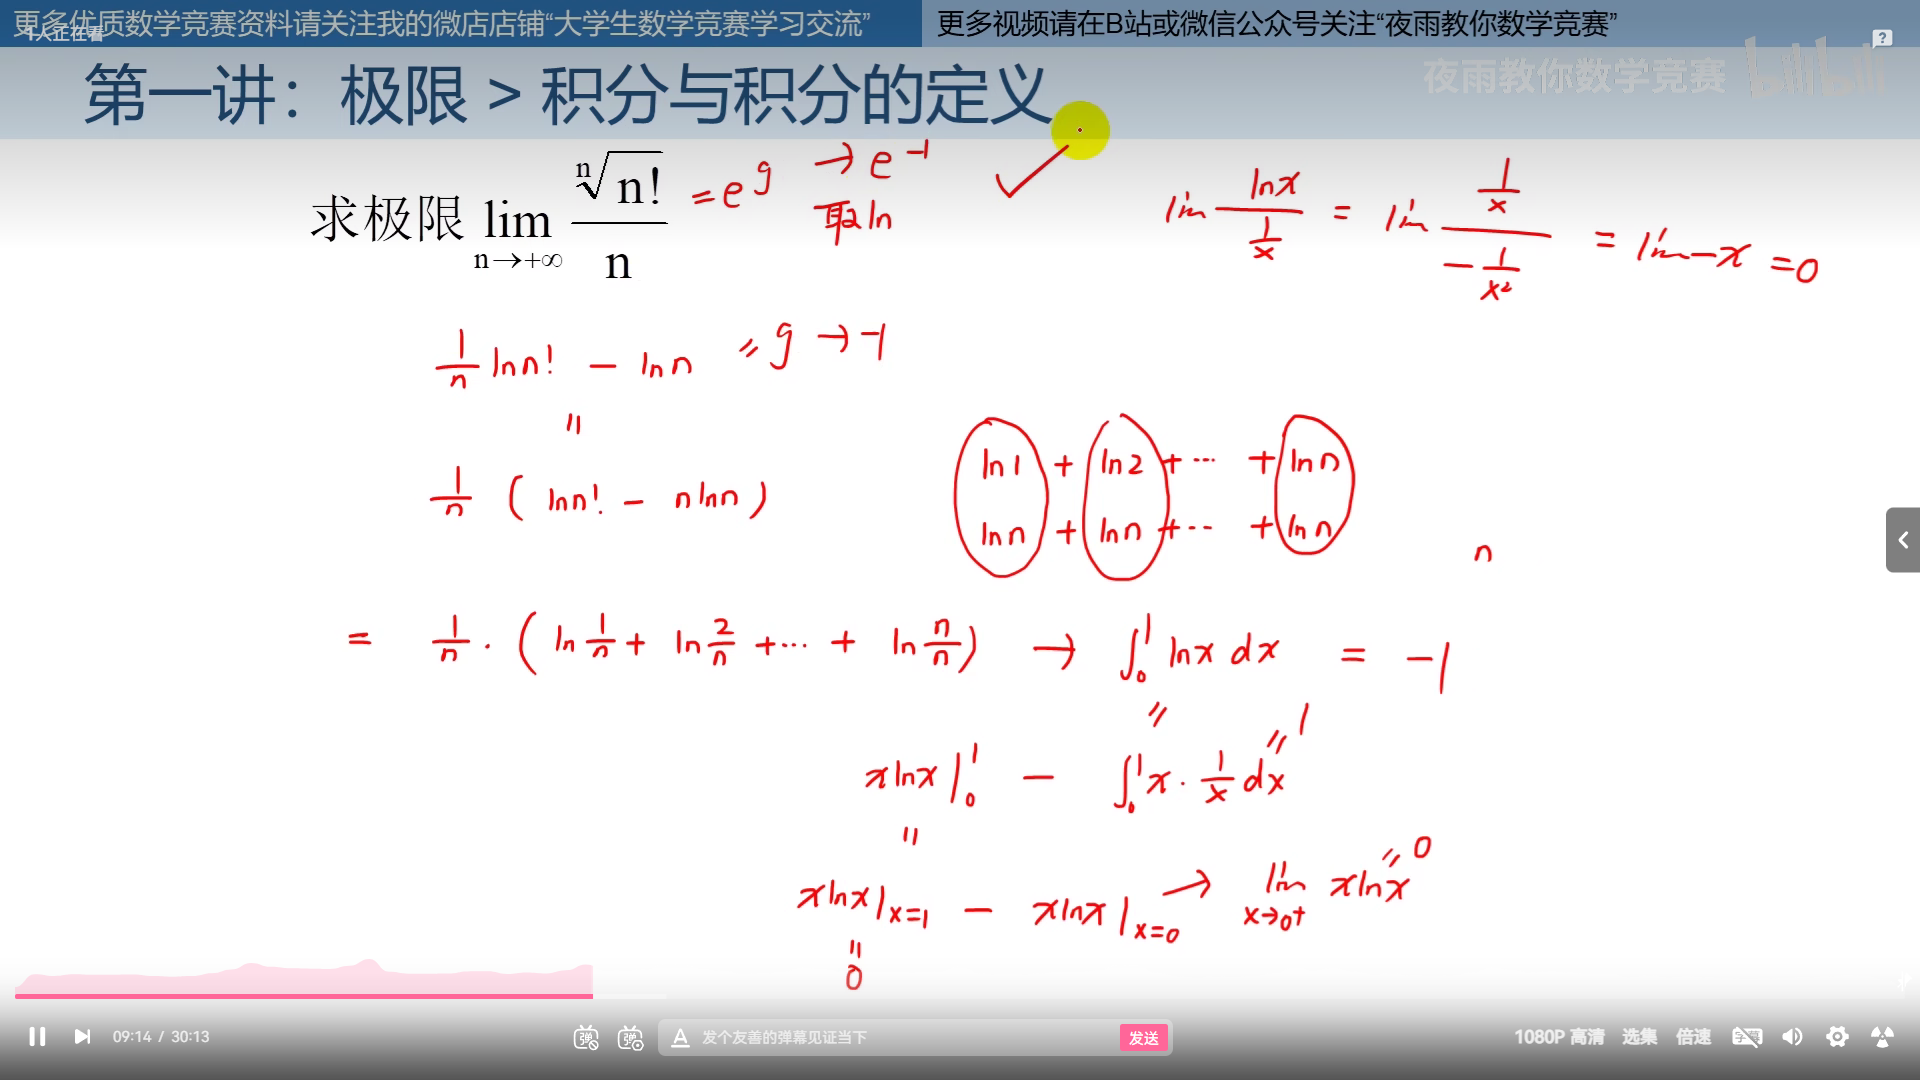 更多优质数学竞赛资料请关注我的微店店铺“大学生数学竞赛学习交流”
更多视频请在B站或微信公众号关注“夜雨教你数学竞赛”
1人正在看
第一讲：极限 > 积分与积分的定义
夜雨教你数学竞赛 bilibili
求极限 lim_{n→+∞} \frac{\sqrt[n]{n!}}{n} = e^g → e^{-1}
取ln
lim \frac{lnx}{\frac{1}{x}} = lim \frac{\frac{1}{x}}{-\frac{1}{x^2}} = lim -x = 0
\frac{1}{n} ln n! - ln n = g → -1
=
\frac{1}{n} ( ln n! - n ln n )
ln 1 + ln 2 + ⋯ + ln n
ln n + ln n + ⋯ + ln n
n
= \frac{1}{n} · ( ln \frac{1}{n} + ln \frac{2}{n} + ⋯ + ln \frac{n}{n} ) → ∫_0^1 lnx dx = -1
=
= 1
xlnx |_0^1 - ∫_0^1 x · \frac{1}{x} dx
=
= 0
xlnx |_{x=1} - xlnx |_{x=0} → lim_{x→0+} xlnx
=
0
09:14 / 30:13
弹
弹
A 发个友善的弹幕见证当下
发送
1080P 高清
选集
倍速
字幕